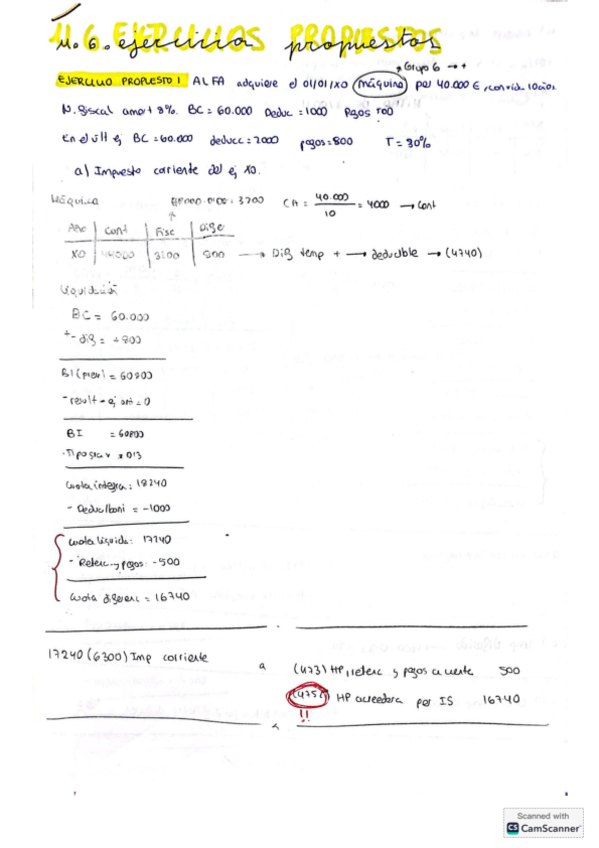 11.6. ejercicios propuestos
EJERCICIO PROPUESTO 1 ALFA adquiere el 01/01/X0 máquina por 40.000 €
Grupo 6 → +
N. fiscal amort 8%. BC = 60.000 Deduc = 1000 Pagos 500
En el últ ej BC = 60.000 deducc = 2000 pagos = 800 T = 30%
a) Impuesto corriente del ej X0.
Máquina
CA = 40.000 / 10 = 4000 → cont
Año Cont Fisc Dife
X0 800 → Dif temp + → deducible → (4740)
Liquidación
BC = 60.000
+- dif = +800
BI (prev) = 60800
- result - ej ant = 0
BI = 60800
Cuota íntegra: 18240
- Deduc/boni = -1000
Cuota líquida: 17240
- Retenc. y pagos: -500
Cuota diferenc = 16740
17240 (6300) Imp corriente
a
(473) HP, retenc y pagos a cuenta 500
(4752) HP acreedora por IS 16740
!!
Scanned with
CS CamScanner